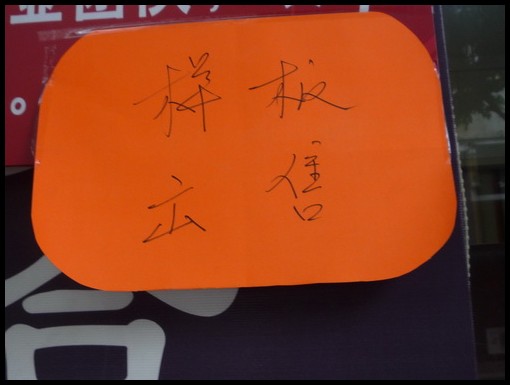 样板
出售